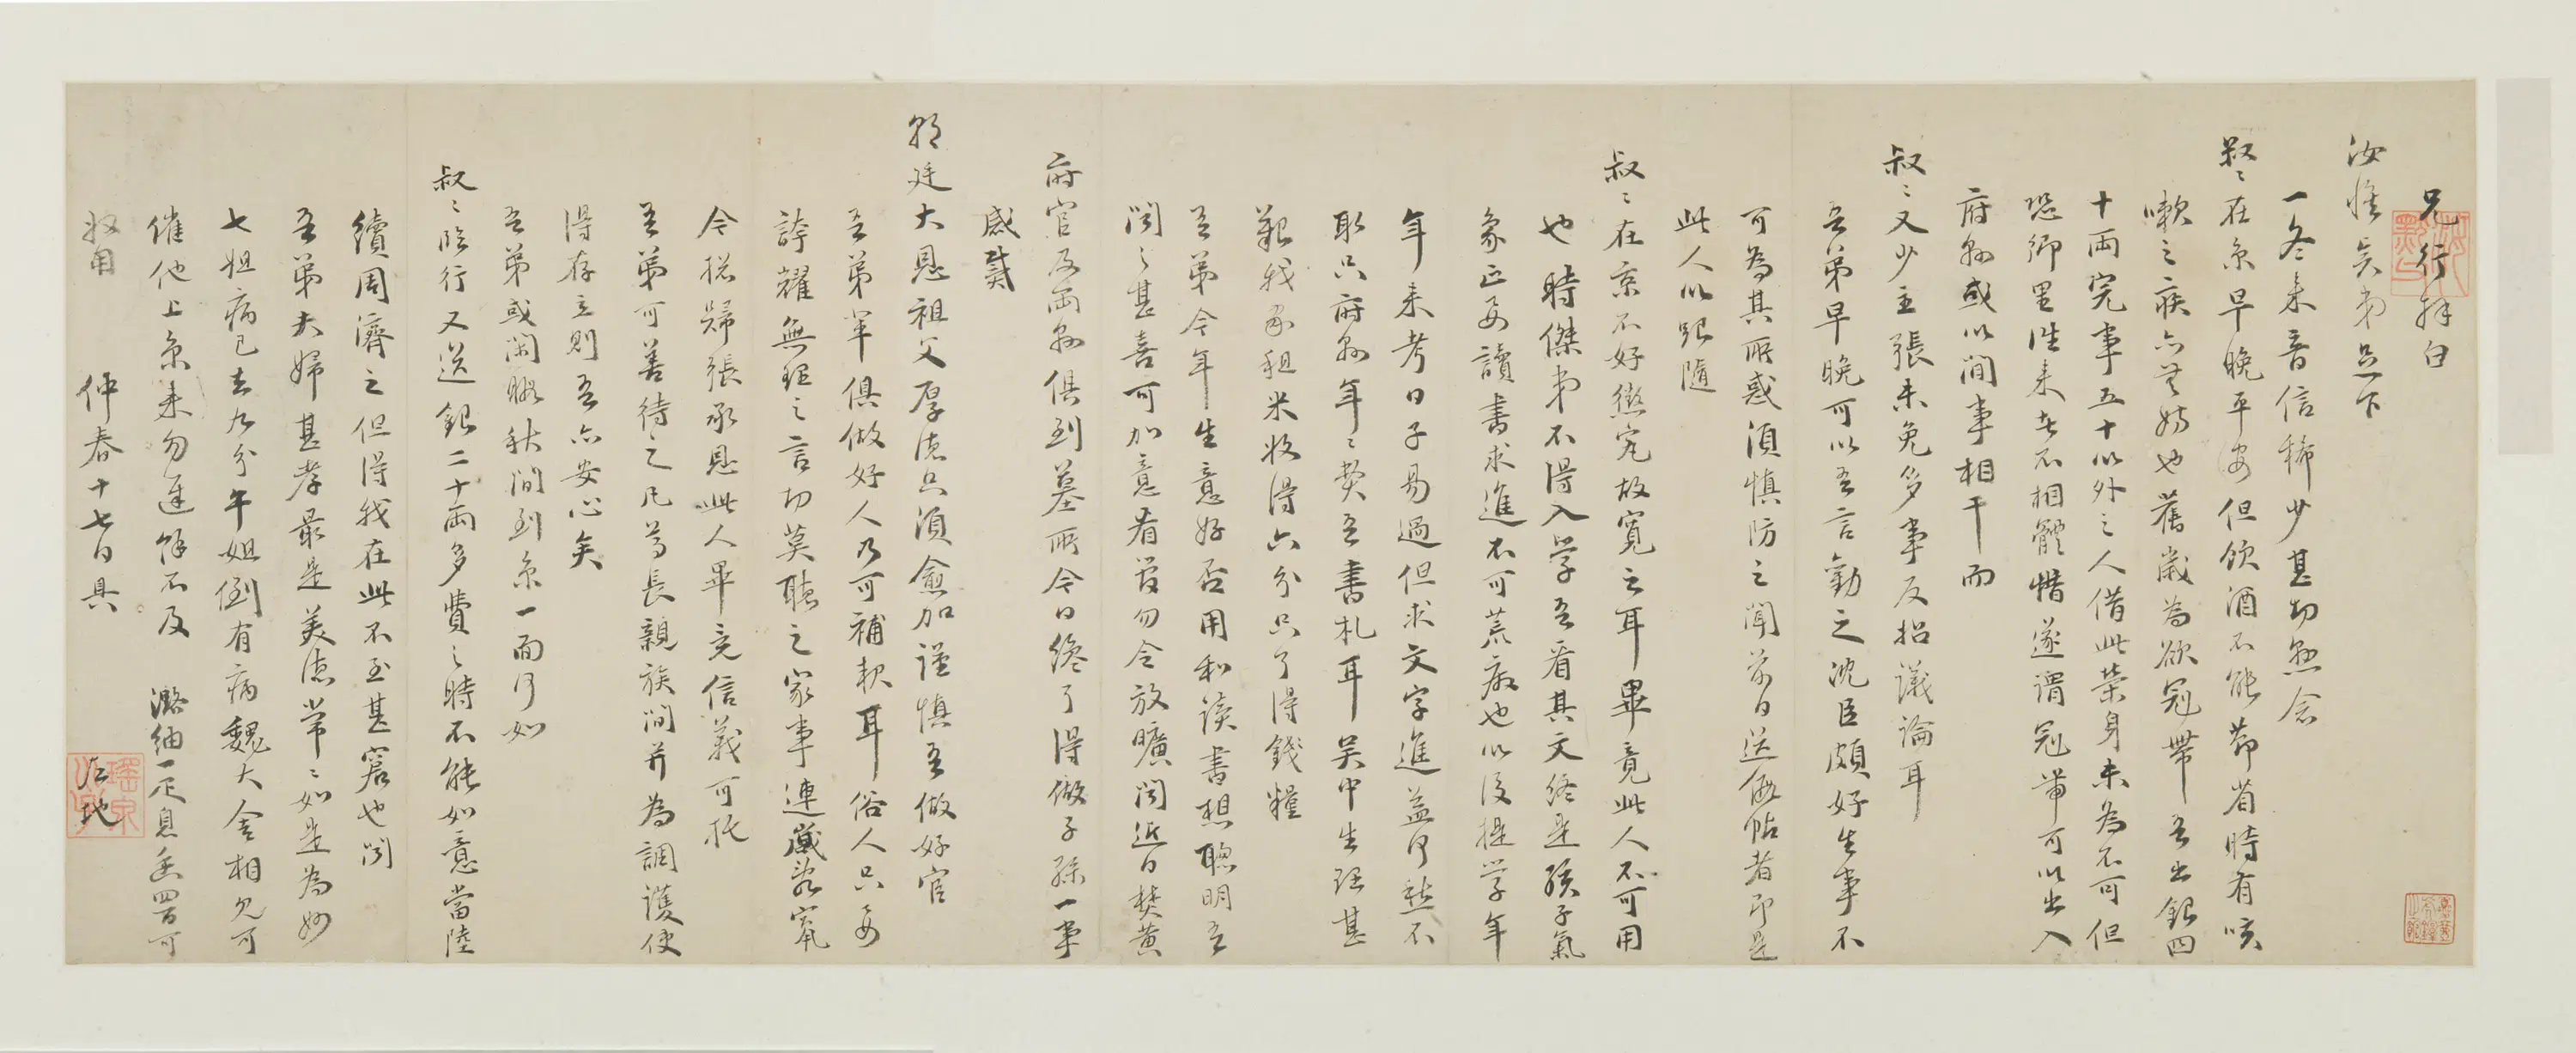 兄行拜白
汝惟矣弟足下
一冬來音信稀少甚切懸念
叔〻在京早晚平安但飲酒不能節省時有咳
嗽之疾亦無妨也舊歲為欲冠帶吾出銀四
十兩完事五十以外之人借此榮身未為不可但
恐鄉里往來者不相體惜遂謂冠帶可以出入
府縣或以閒事相干而
叔〻又少主張未免多事反招議論耳
吾弟早晚可以吾言勸之沈臣頗好生事不
可為其所惑須慎防之聞前日送帖者即是
此人以跟隨
叔〻在京不好懲究故寬之耳畢竟此人不可用
也時傑弟不得入學吾看其文終是孩子氣
象正要讀書求進不可荒廢也以後提學年
年來考日子易過但求文字進益何愁不
取只府縣年〻費吾書札耳吳中生理甚
艱我家租米收得六分只了得錢糧
吾弟今年生意好否用和讀書想聰明吾
聞之甚喜可加意看管勿令放曠聞近日焚黄
府官及兩縣俱到墓所今日纔了得做子孫一事
感戴
朝廷大恩祖父厚德只須愈加謹慎吾做好官
吾弟輩俱做好人乃可補報耳俗人只要
誇耀無理之言切莫聽之家事連歲
今搃歸張承恩此人畢竟信義可托
吾弟可善待之凡尊長親族間并為調護使
得存立則吾亦安心矣
吾弟或閑暇秋間到京一面何如
叔〻臨行又送銀二十兩多費之時不能如意當陸
續周濟之但得我在此不至甚窘也聞
吾弟夫婦甚孝最是美德常〻如是為妙
七姐病已去九分午姐倒有病魏大舍相見可
催他上京來勿遲餘不及 潞紬一疋息香四百可
收用 仲春十七日具 左地